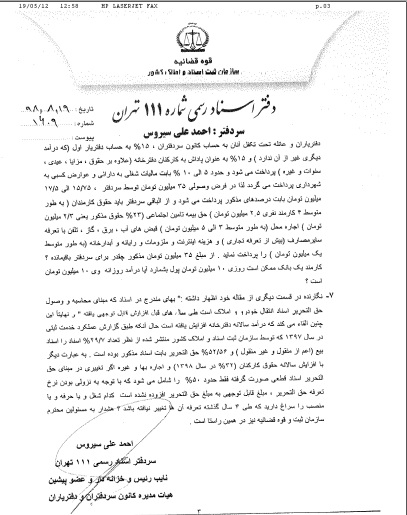 19/05/12 12:58 HP LASERJET FAX p.03
قوه قضائیه
سازمان ثبت اسناد و املاک کشور
دفتر اسناد رسمی شماره ۱۱۱ تهران
سردفتر : احمد علی سیروس
تاریخ ۹۸،۸،۱۹
شماره ۱۶۰۹
پیوست
دفتریاران و عائله تحت تکفل آنان به حساب کانون سردفتران ، ۱۵% به حساب دفتریار اول (که درآمد
دیگری غیر از آن ندارد ) و ۱۵% به عنوان پاداش به کارکنان دفترخانه (علاوه بر حقوق ، مزایا ، عیدی ،
سنوات و غیره ) پرداخت می شود و حدود ۵ الی ۱۰ % بابت مالیات شغلی به دارائی و عوارض کسبی به
شهرداری پرداخت می گردد لذا در فرض وصولی ۳۵ میلیون تومان توسط سردفتر ، ۱۵/۷۵ الی ۱۷/۵
میلیون تومان بابت درصدهای مذکور پرداخت می شود و از الباقی سردفتر باید حقوق کارمندان ( به طور
متوسط ۴ کارمند نفری ۲.۵ میلیون تومان ) حق بیمه تامین اجتماعی (۲۳% حقوق مذکور یعنی ۲/۳ میلیون
تومان ) اجاره محل (به طور متوسط ۳ الی ۵ میلیون تومان ) قبض های آب ، برق ، گاز ، تلفن با تعرفه
سایرمصارف (بیش از تعرفه تجاری ) و هزینه اینترنت و ملزومات و رایانه و آبدارخانه (به طور متوسط
یک میلیون تومان ) را پرداخت نماید . از مبلغ ۳۵ میلیون تومان مذکور چقدر برای سردفتر باقیمانده ؟
کارمند یک بانک ممکن است روزی ۱۰ میلیون تومان پول بشمارد آیا درآمد روزانه وی ۱۰ میلیون تومان
است ؟
۷- نگارنده در قسمت دیگری از مقاله خود اظهار داشته :" بهای مندرج در اسناد که مبنای محاسبه و وصول
حق التحریر اسناد انتقال خودرو و املاک است طی سال های قبل افزایش قابل توجهی یافته " و نهایتاً این
چنین القاء می کند که درآمد سالانه دفترخانه افزایش یافته است حال آنکه طبق گزارش عملکرد خدمت ثبتی
در سال ۱۳۹۷ که توسط سازمان ثبت اسناد و املاک کشور منتشر شده از نظر تعداد ۲۹/۷% اسناد را اسناد
بیع (اعم از منقول و غیر منقول ) و ۵۲/۵۴% حق التحریر بابت اسناد مذکور بوده است . به عبارت دیگر
با افزایش سالانه حقوق کارکنان (۳۲% در سال ۱۳۹۸ ) و اجاره بها و غیره اگر تغییری در مبنای حق
التحریر اسناد قطعی صورت گرفته فقط حدود ۵۰% را شامل می شود که با توجه به نزولی بودن نرخ
تعرفه حق التحریر ، مبلغ قابل توجهی به مبلغ حق التحریر افزوده نشده است کدام شغل و یا حرفه و یا
منصب را سراغ دارید که طی ۴ سال گذشته تعرفه آن ها تغییر نیافته باشد ؟ هشدار به مسئولین محترم
سازمان ثبت و قوه قضائیه نیز در همین راستا است .
احمد علی سیروس
سردفتر اسناد رسمی ۱۱۱ تهران
نایب رئیس و خزانه دار و عضو پیشین
هیات مدیره کانون سردفتران و دفتریاران
۳